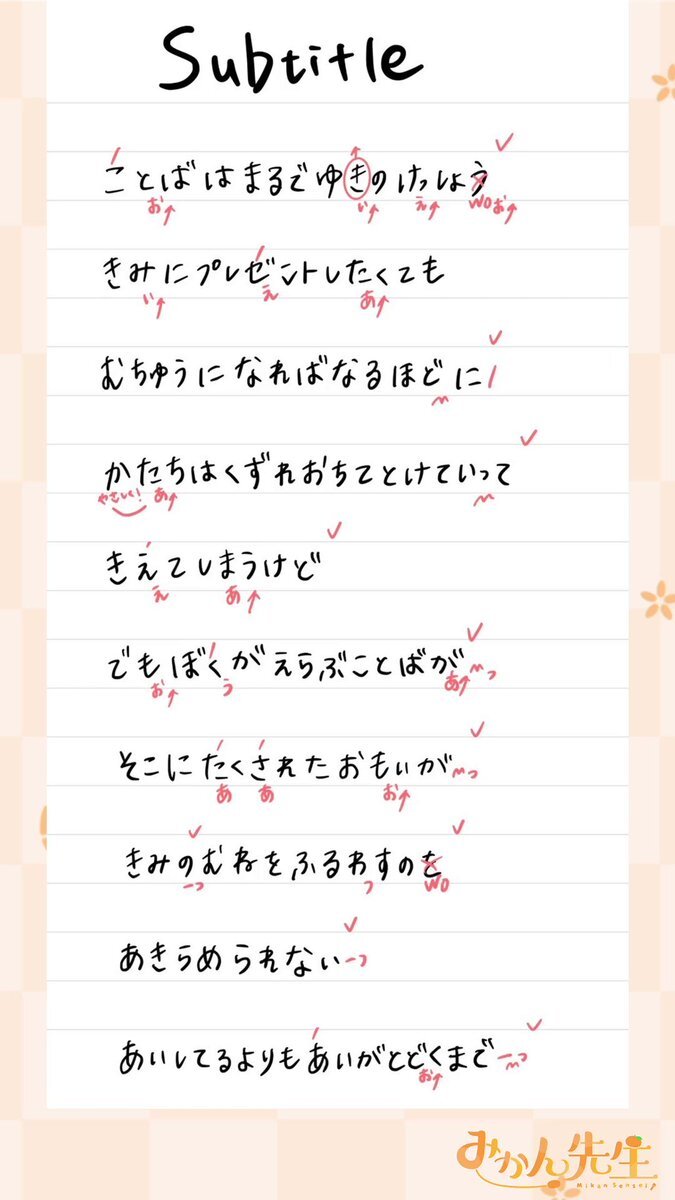 Subtitle
ことばはまるでゆきのけっしょう
お↑ い↑ え↑ wo お↑
きみにプレゼントしたくても
い↑ え あ↑
むちゅうになればなるほどに
かたちはくずれおちてとけていって
やさしく! あ↑
きえてしまうけど
え あ↑
でもぼくがえらぶことばが
お↑ う あ↑ っ
そこにたくされたおもいが
っ
あ あ お↑
きみのむねをふるわすのを
ーっ っ wo
あきらめられない
ーっ
あいしてるよりもあいがとどくまで
ーっ
お↑
みかん先生
Mikan Sensei